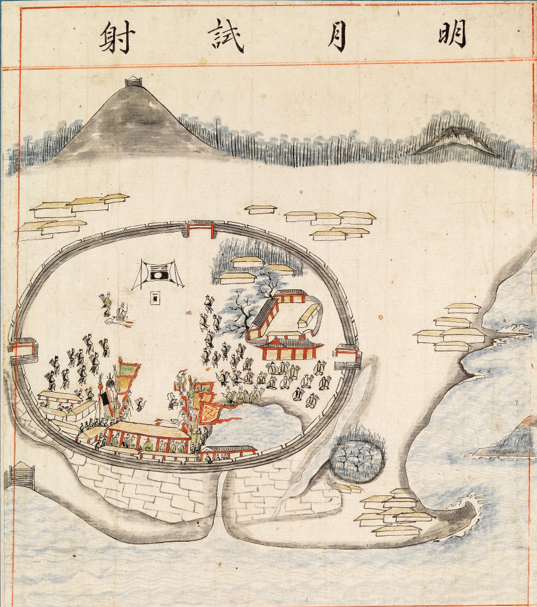 明月試射